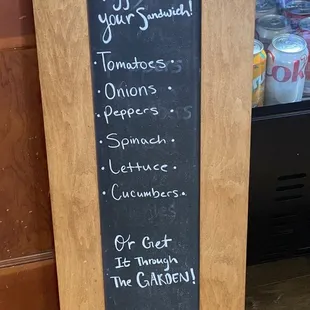 your Sandwich!
• Tomatoes •
• Onions •
• Peppers •
• Spinach •
• Lettuce •
• Cucumbers •
Or Get
It Through
The GARDEN!